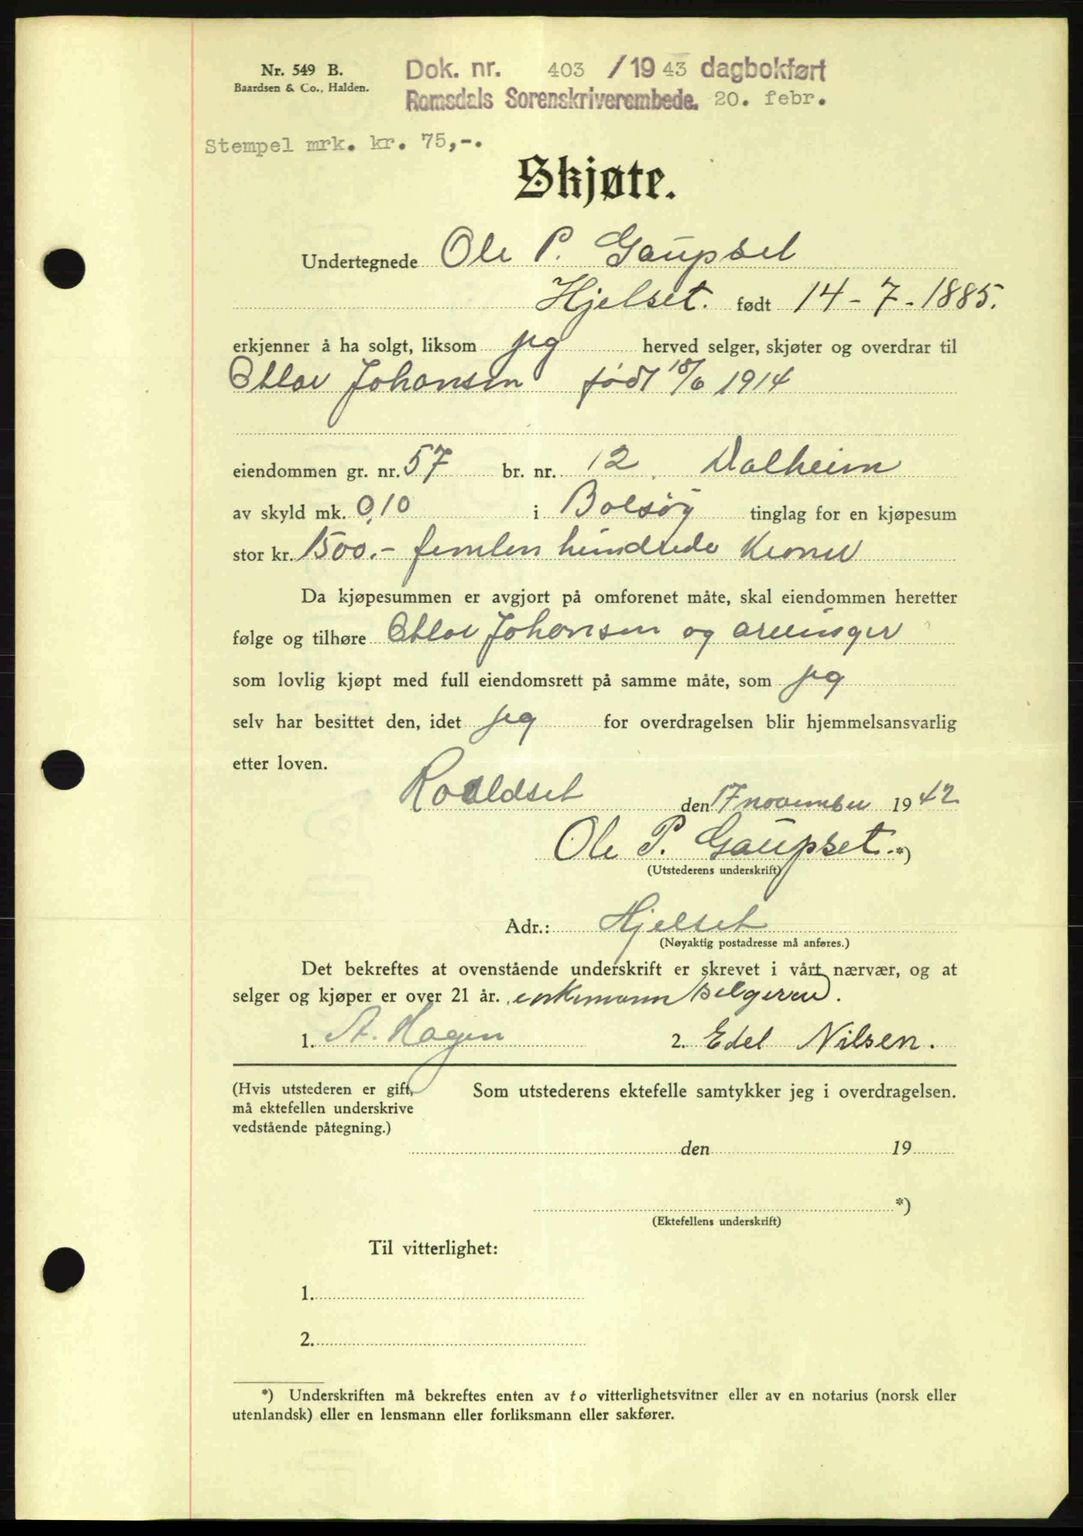 Nr. 549 B.
Baardsen & Co., Halden.
Dok. nr. 403 /1943 dagbokført
Romsdals Sorenskriverembede. 20. febr.
Stempel mrk. kr. 75,-.
Skjøte.
Undertegnede Ole P. Gaupset
Hjelset. født 14-7-1885.
erkjenner å ha solgt, liksom jeg herved selger, skjøter og overdrar til
Johansen født 18/6 1914
eiendommen gr. nr. 57 br. nr. 12 Dalheim
av skyld mk. 0,10 i Bolsøy tinglag for en kjøpesum
stor kr. 1500.- femten hundrede kroner
Da kjøpesummen er avgjort på omforenet måte, skal eiendommen heretter
følge og tilhøre Johansen og arvinger
som lovlig kjøpt med full eiendomsrett på samme måte, som jeg
selv har besittet den, idet jeg for overdragelsen blir hjemmelsansvarlig
etter loven.
Roaldset den 17 november 1942
Ole P. Gaupset. *)
(Utstederens underskrift)
Adr.: Hjelset
(Nøyaktig postadresse må anføres.)
Det bekreftes at ovenstående underskrift er skrevet i vårt nærvær, og at
selger og kjøper er over 21 år. enkemann (selgeren).
1. A. Hagen 2. Edel Nilsen.
(Hvis utstederen er gift, må ektefellen underskrive vedstående påtegning.)
Som utstederens ektefelle samtykker jeg i overdragelsen.
den 19
*)
(Ektefellens underskrift)
Til vitterlighet:
1.
2.
*) Underskriften må bekreftes enten av to vitterlighetsvitner eller av en notarius (norsk eller
utenlandsk) eller en lensmann eller forliksmann eller sakfører.